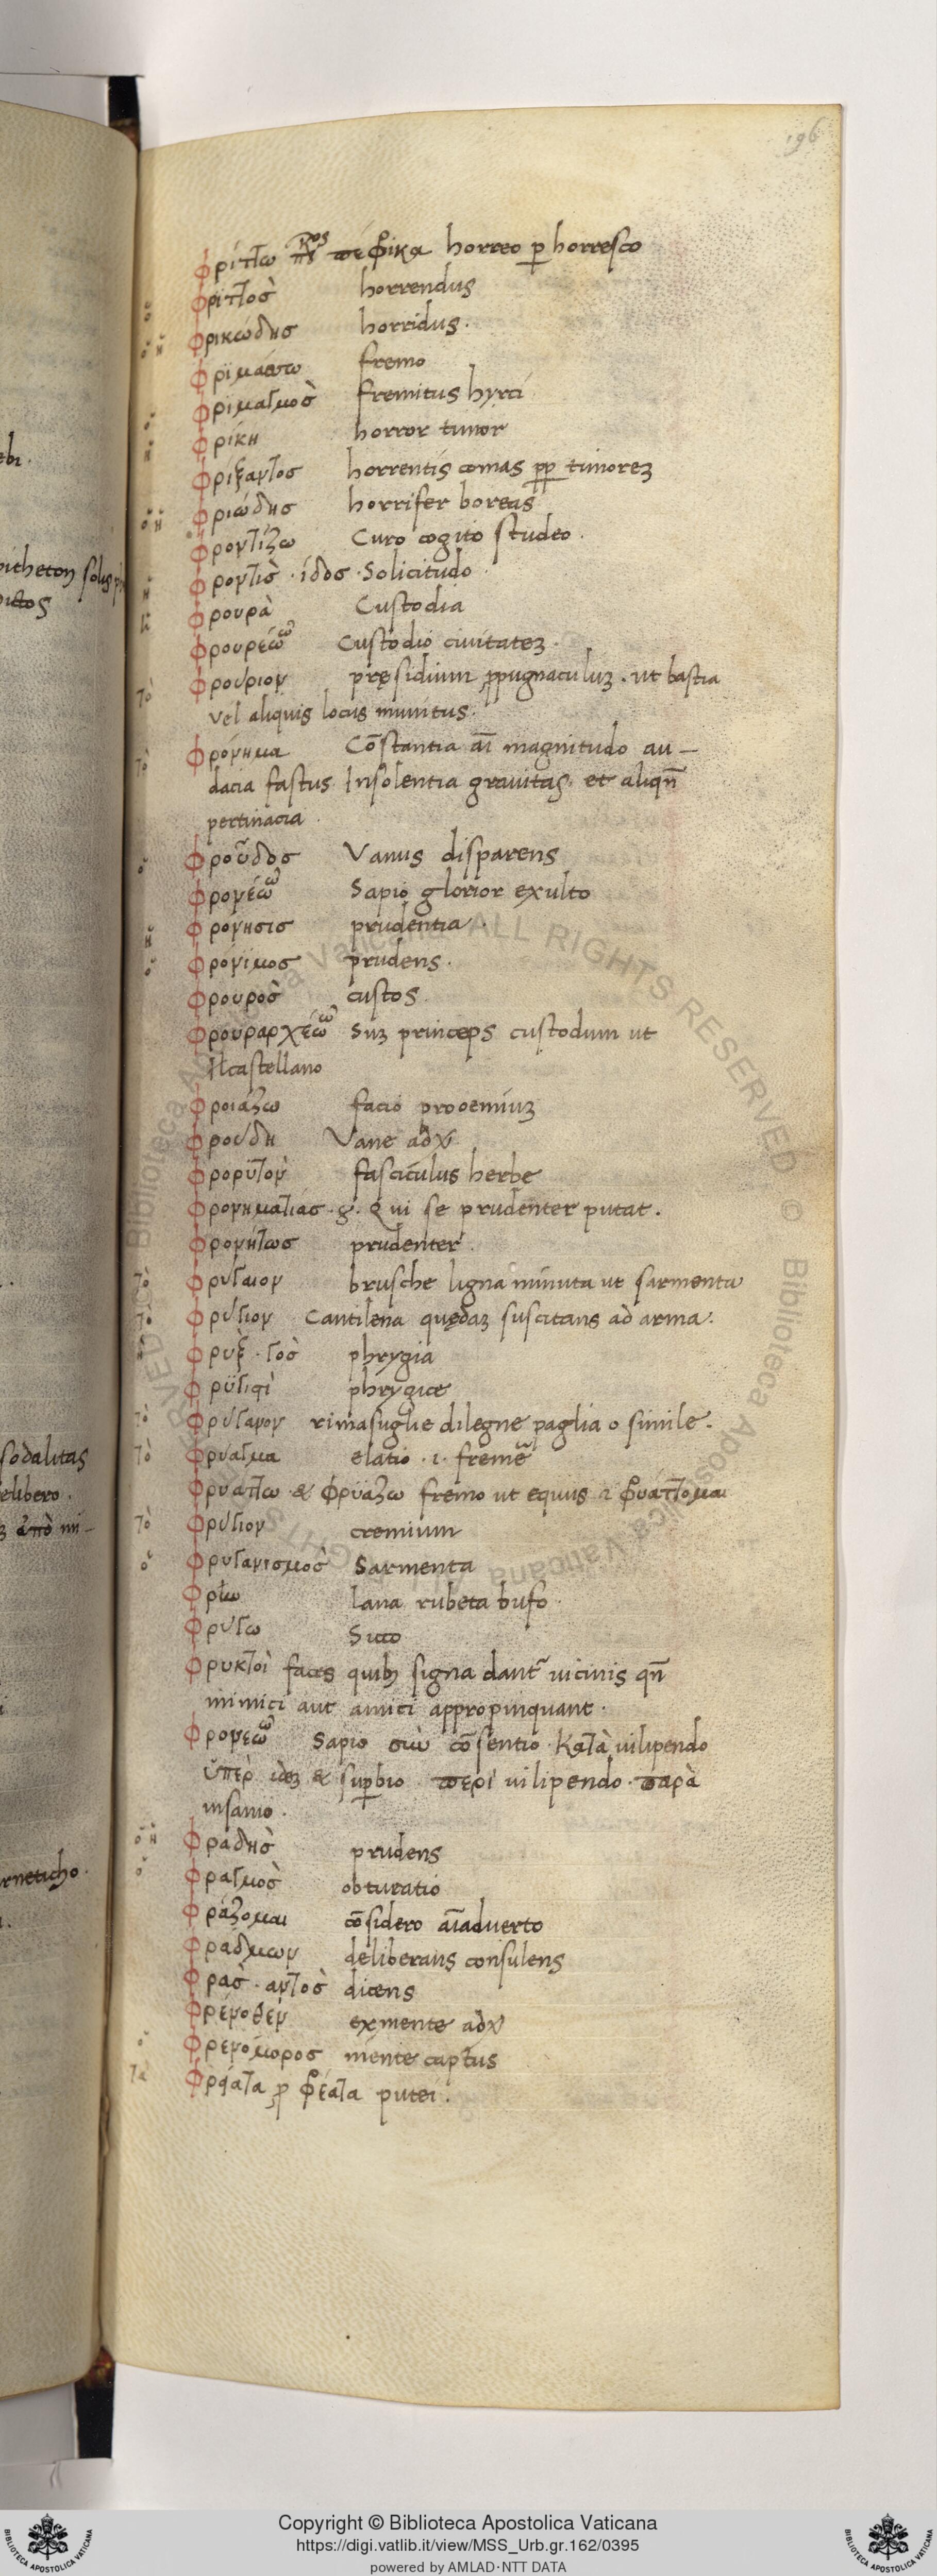 196
φρίττω πέφρικα horreo p horresco
φριττὸσ horrendus
ὁ ἡ φρικώδησ horridus.
φριμάσσω fremo
φριμαγμοσ̀ fremitus hyrci
ἡ φρίκη horror timor
φρίξαντοσ horrentis comas timorez
ὁ ἡ φριώδησ horrifer boreas
φροντίζω Curo cogito studeo.
φροντισ̀ · ίδοσ · Solicitudo.
φρουρὰ Custodia
φρουρέω ῶ Custodio ciuitatez.
τὸ φρούριον pręsidium ꝓpugnaculuz. ut bastia
vel aliquis locus munitus.
τὸ φρόνημα Cōstantia aī magnitudo au-
dacia fastus Insolentia grauitas. et aliqn̄
pertinacia.
ὁ φροῦδοσ Vanus disparens
φρονέω ῶ Sapio glorior exulto
ἡ φρόνησισ prudentia.
ὁ φρόνιμοσ prudens.
φρουροσ̀ custos.
φρουραρχέω ῶ Suz princeps custodum ut
Il castellano
φροιάζω facio prooemiuz
φρούδη Vane adv
φρορυτὸν fasciculus herbe
φρονηματίασ. Qui se prudenter putat.
φρονήτωσ prudenter.
τὸ φρύγαιον brusche ligna minuta ut sarmenta
τὸ φρύγιον Cantilena quędaz suscitans ad arma.
φρυξ̀ · γοσ̀ phrygia
φρϋγιστὶ phrygice
τὸ φρύγανον rimasuglie dilegne paglia o simile.
τὸ φρύαγμα elatio .i. freme
φρυάττω & φρϋάζω fremo ut equus φρυάττομαι
τὸ φρύγιον cremium
ὁ φρυγανισμοσ̀ Sarmenta
lana rubeta bufo.
φρύγω Sicco
φρυκτοὶ faces quibꝫ signa dant uicinis qn̄
inimici aut amici appropinquant.
φρονεω ῶ Sapio σὺν cōsentio · Κατὰ uilipendo
ὕπερ̀ idez & supbio · περι̇̀ uilipendo · παρὰ
insanio.
ὁ ἡ φραδησ̀ prudens
ὁ φραγμοσ̀ obturatio
φράζομαι cōsidero aīaduerto
φράδμων deliberans consulens
φρασ̀ · αντοσ̀ dicens
φρένοθεν exmente adv
ὁ φρενόμοροσ mente captus
τὰ φρήατα p φρέατα putei.
https://digi.vatlib.it/view/MSS_Urb.gr.162/0395
Copyright © Biblioteca Apostolica Vaticana
powered by AMLAD·NTT DATA